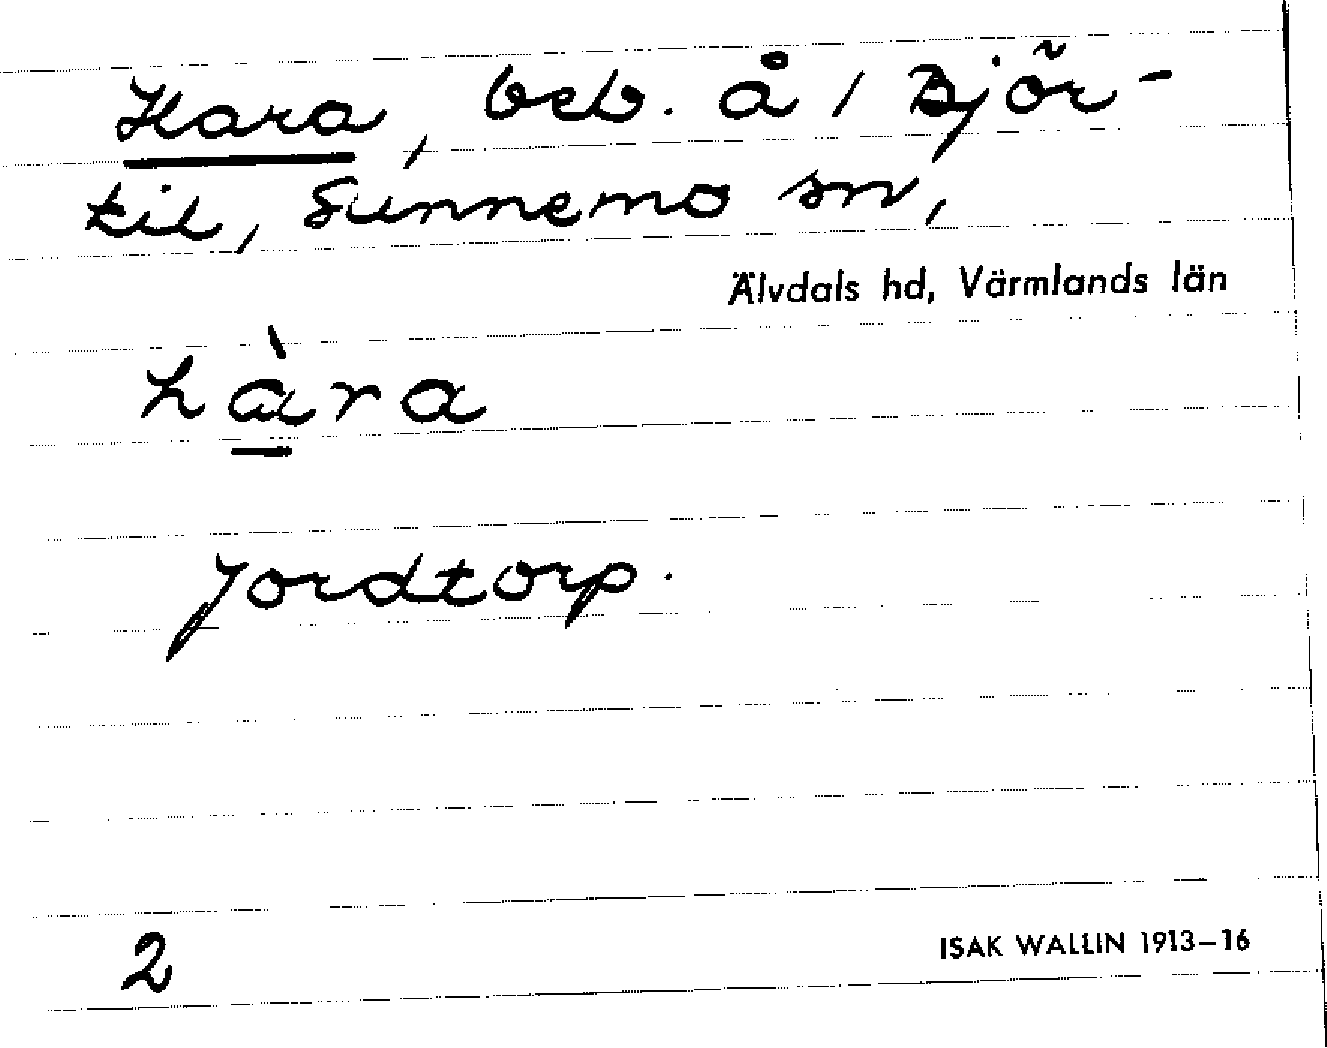 Hara, beb. å / Björ-
til, Sunnemo sn,
Älvdals hd, Värmlands län
hàra
Jordtorp.
2
ISAK WALLIN 1913–16